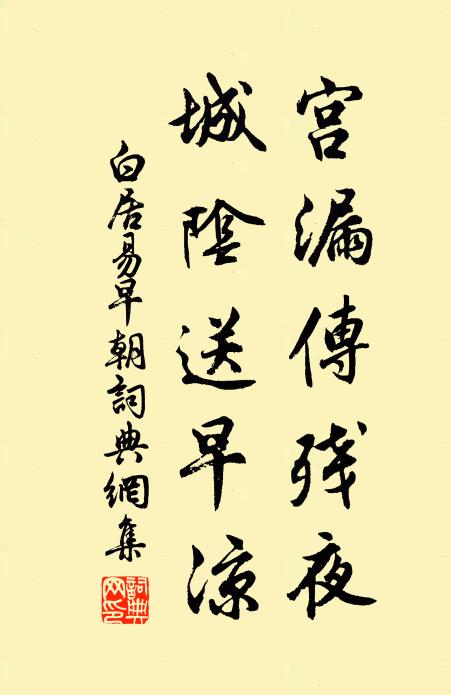 宫漏傳残夜
城陰送早涼
白居易早朝詞典網集
詞典網印